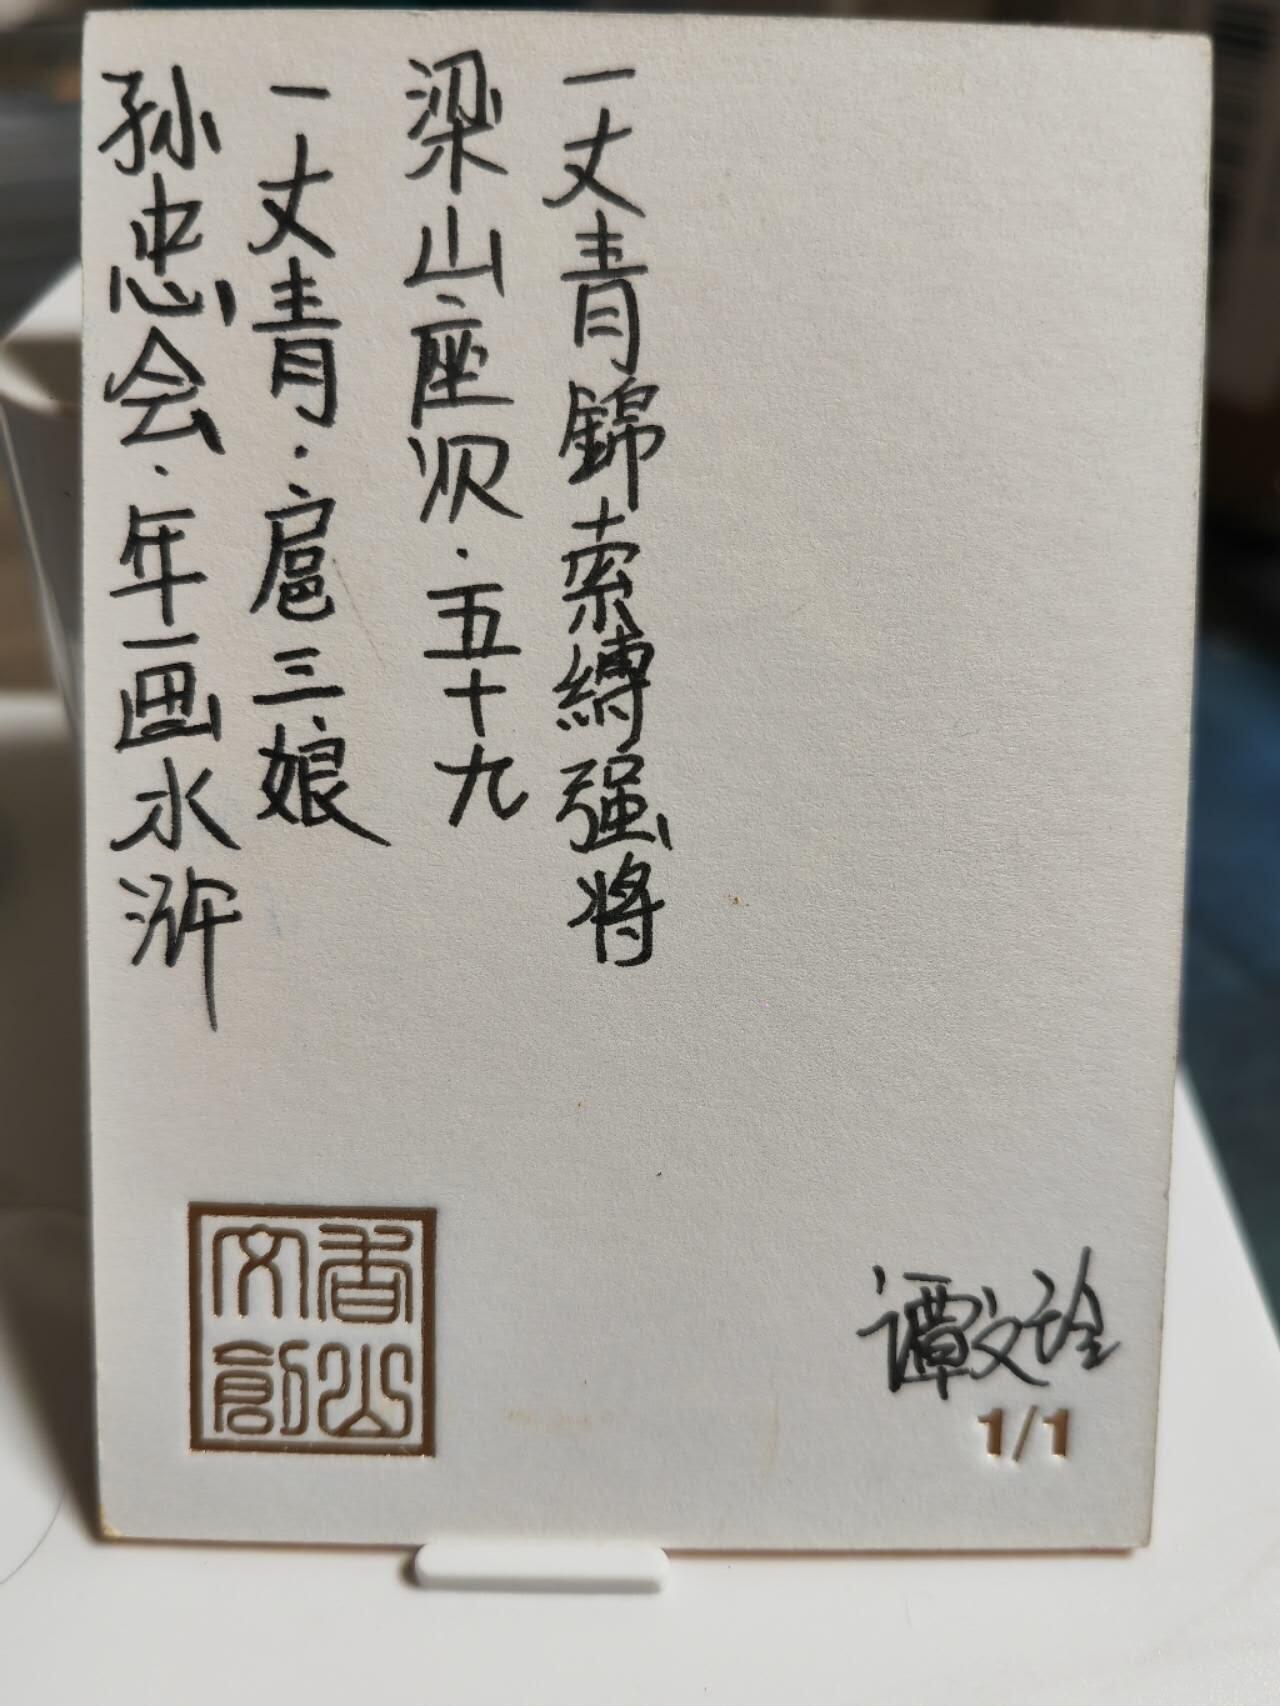 孙忠会·年画水浒
一丈青·扈三娘
梁山座次·五十九
一丈青錦索縛强将
香山文創
谭文
1/1